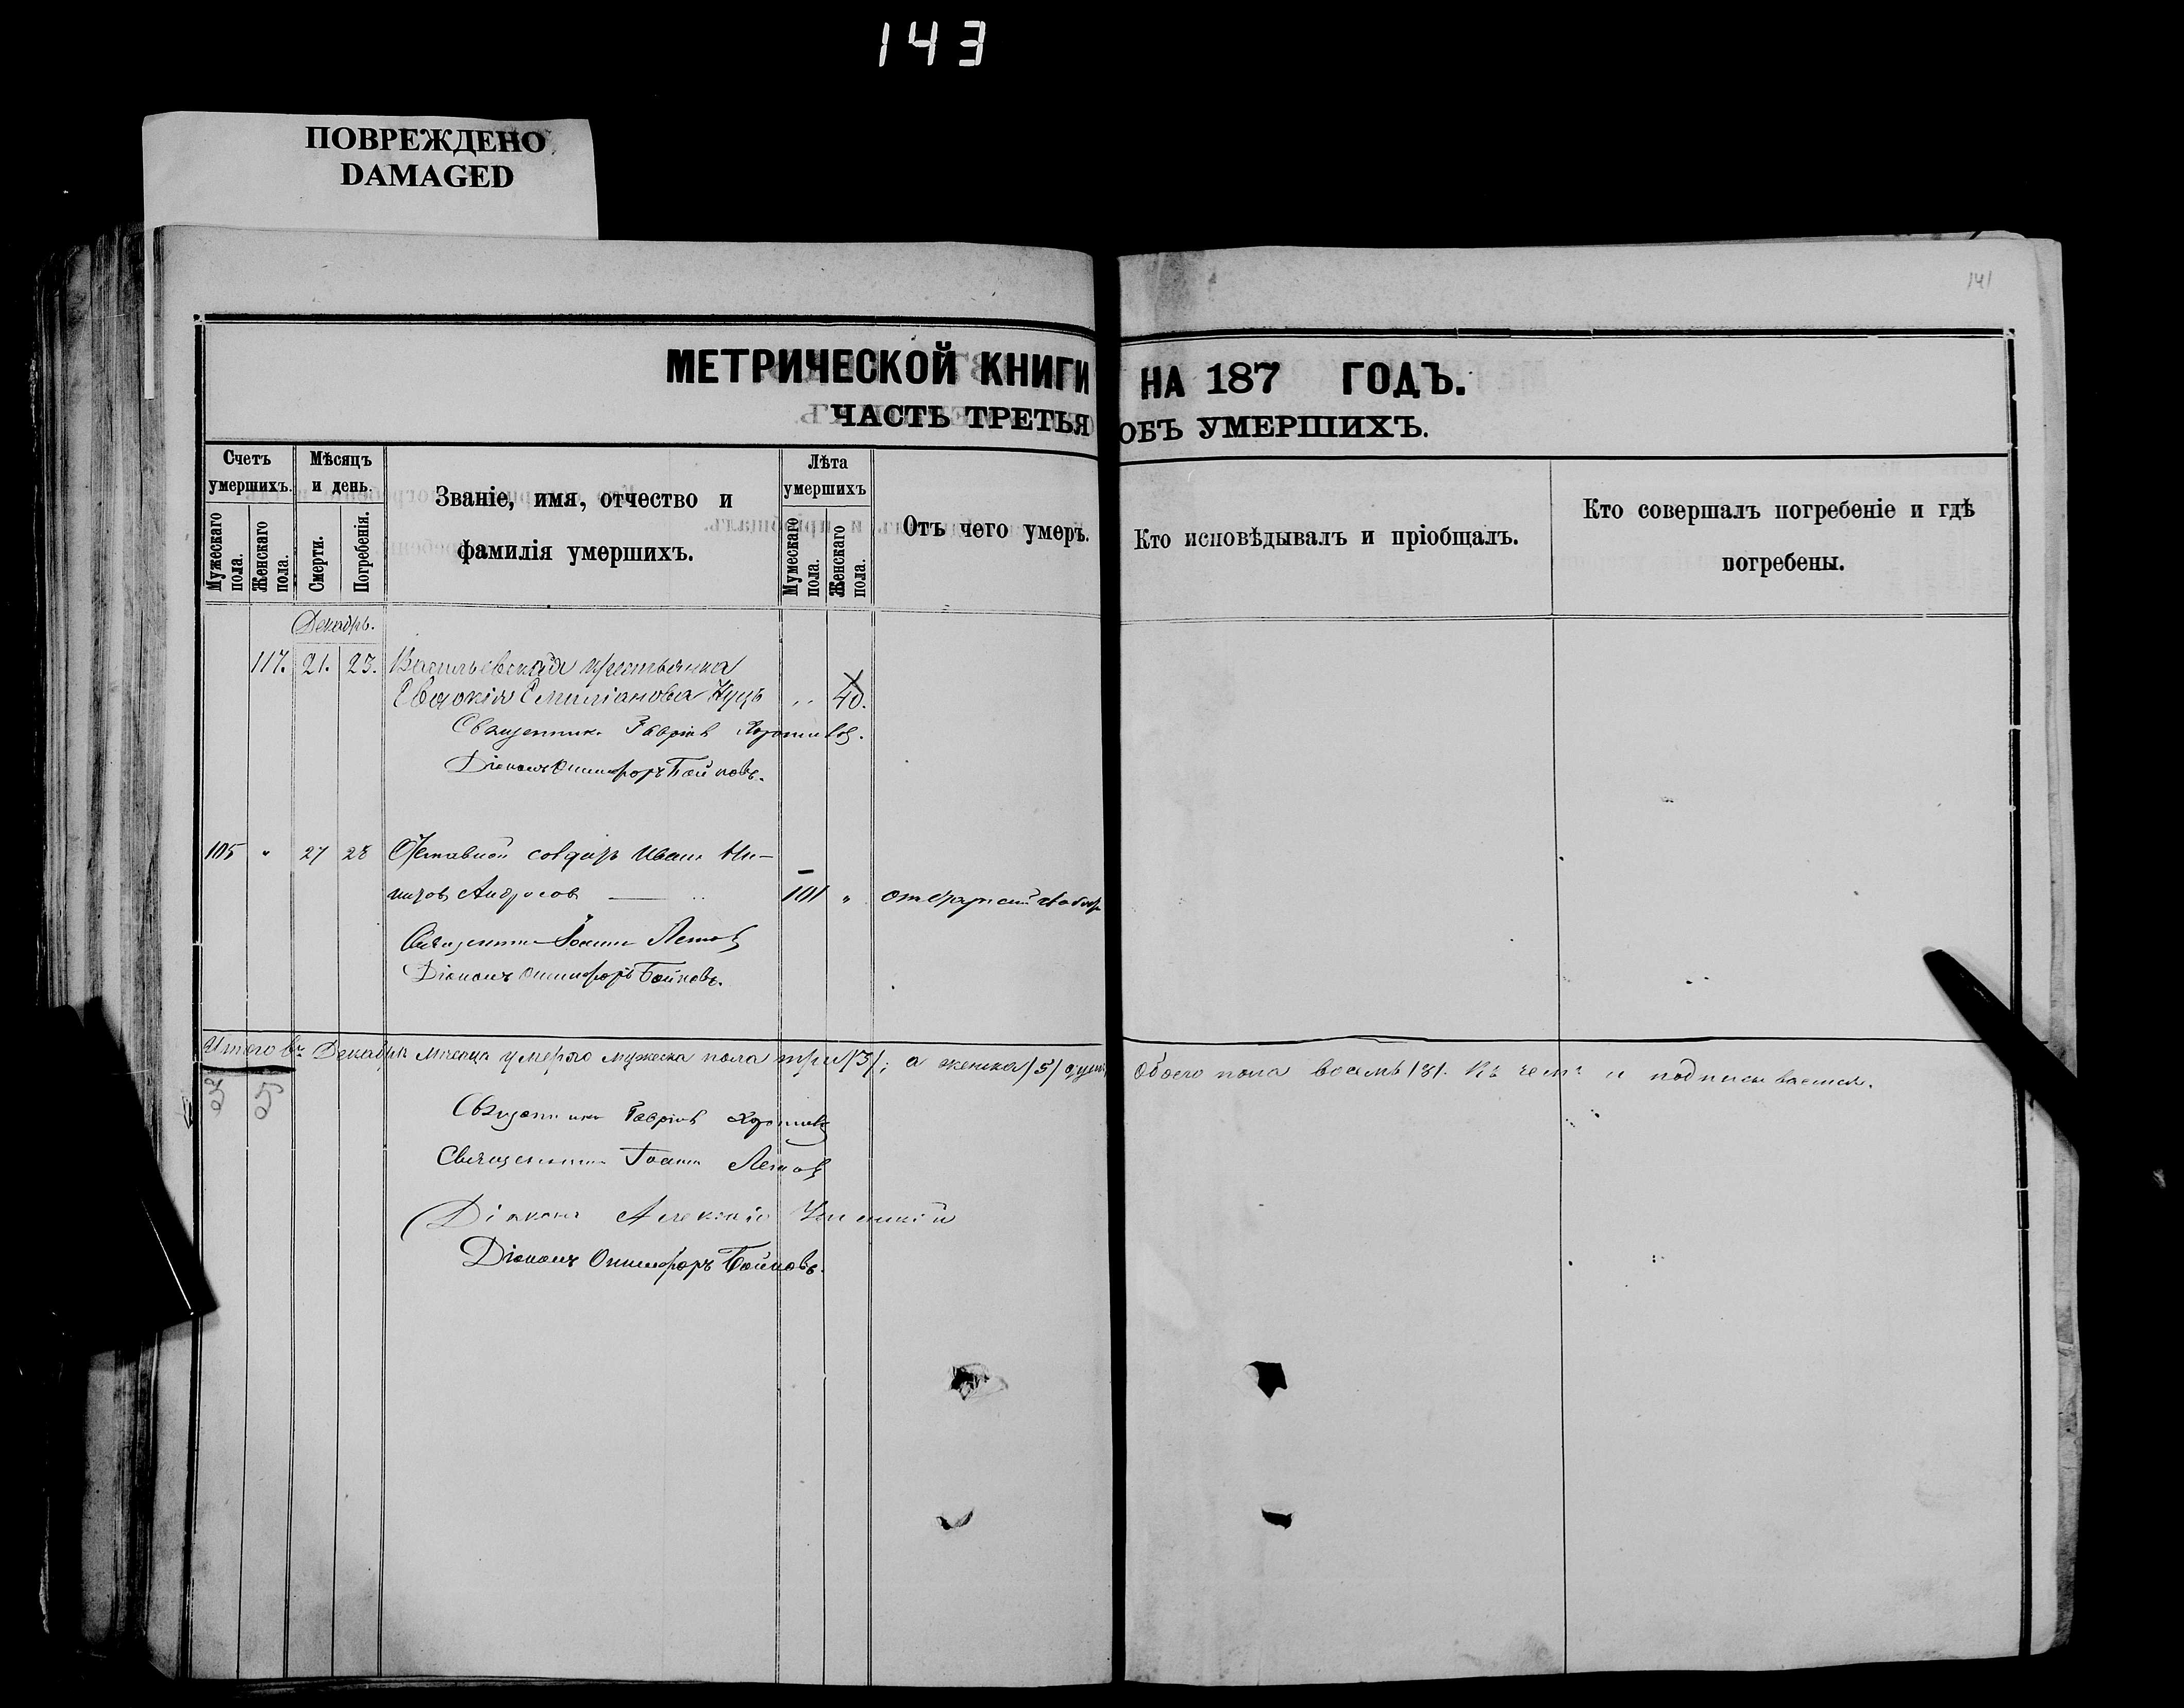 143
ПОВРЕЖДЕНО
DAMAGED
141
МЕТРИЧЕСКОЙ КНИГИ НА 187 ГОДЪ.
ЧАСТЬ ТРЕТЬЯ ОБЪ УМЕРШИХЪ.
Счетъ умершихъ.
Мужескаго пола.
Женскаго пола.
Мѣсяцъ и день.
Смерти.
Погребенія.
Званіе, имя, отчество и
фамилія умершихъ.
Лѣта умершихъ
Мужескаго пола.
Женскаго пола.
Отъ чего умеръ.
Кто исповѣдывалъ и пріобщалъ.
Кто совершалъ погребеніе и гдѣ
погребены.
Декабрь.
117. 21. 23. Васильевская крестьянка
Евдокія Емиліанова „ 40.
Священникъ Гавріилъ
Діаконъ Онисифоръ Бойковъ.
105 „ 27 28 Отставной солдатъ Иванъ
Андросов 101 „ от
Священникъ Іоаннъ
Діаконъ Онисифоръ Бойковъ.
Итого въ Декабрѣ Мѣсяцѣ умерло мужеска пола три /3/; а женска /5/ Обоего пола восемь /8/. Въ чемъ и подписываемся.
3 5
Священникъ Гавріилъ
Священникъ Іоаннъ
Діаконъ Алексій
Діаконъ Онисифоръ Бойковъ.